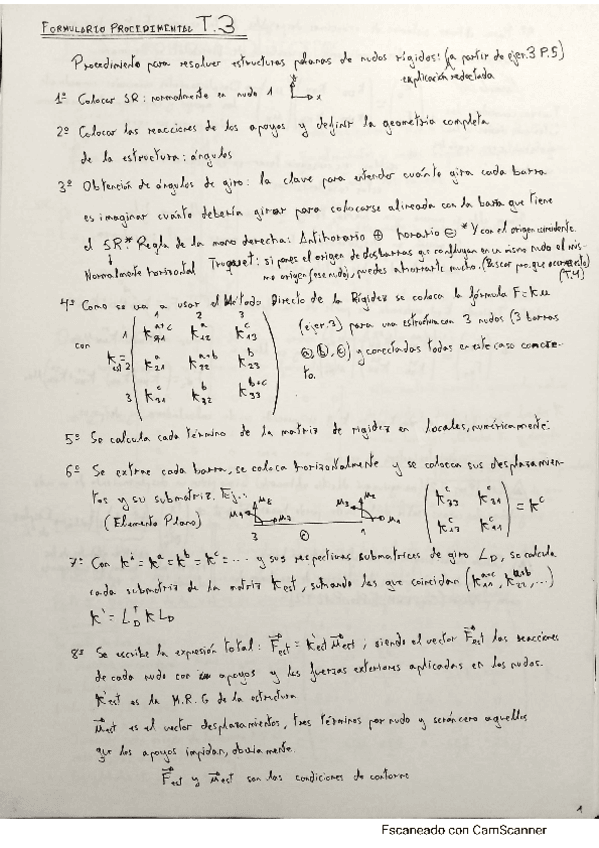 FORMULARIO PROCEDIMENTAL T.3
Procedimiento para resolver estructuras planas de nudos rígidos: (a partir de ejer.3 P.5)
explicación redactada
1º Colocar SR: normalmente en nudo 1 y x
2º Colocar las reacciones de los apoyos y definir la geometría completa
de la estructura: ángulos
3º Obtención de ángulos de giro: la clave para entender cuánto gira cada barra
es imaginar cuánto debería girar para colocarse alineada con la barra que tiene
el SR.* Regla de la mano derecha: Antihorario ⊕ horario ⊖ * Y con el origen coincidente.
Normalmente horizontal Truquet: si pones el origen de dos barras que confluyan en un mismo nudo el mis-
mo origen (ese nudo), puedes ahorrarte mucho. (Buscar por qué ocurre esto)
(T.4)
4º Como se va a usar el Método Directo de la Rigidez se coloca la fórmula F=Ku
1 2 3
1 K₁₁ᵃ⁺ᶜ K₁₂ᵃ K₁₃ᶜ (ejer.3) para una estructura con 3 nudos (3 barras
con K est = 2 K₂₁ᵃ K₂₂ᵃ⁺ᵇ K₂₃ᵇ ⓐ, ⓑ, ⓒ) y conectadas todas en este caso concre-
3 K₃₁ᶜ K₃₂ᵇ K₃₃ᵇ⁺ᶜ to.
5º Se calcula cada término de la matriz de rigidez en locales, numéricamente:
6º Se extrae cada barra, se coloca horizontalmente y se colocan sus desplazamien-
tos y su submatriz. Ej.:
(Elemento Plano) 3 ⓒ 1 (K₃₃ᶜ K₃₁ᶜ K₁₃ᶜ K₁₁ᶜ) = Kᶜ
7º Con Kⁱ = Kᵃ = Kᵇ = Kᶜ = ... y sus respectivas submatrices de giro L_D, se calcula
cada submatriz de la matriz K est, sumando las que coincidan (K₁₁ᵃ⁺ᶜ, K₂₂ᵃ⁺ᵇ, ...)
K' = L_Dᵀ K L_D
8º Se escribe la expresión total: F⃗est = K'est u⃗est ; siendo el vector F⃗est las reacciones
de cada nudo con apoyos y las fuerzas exteriores aplicadas en los nudos.
K'est es la M.R.G de la estructura
u⃗est es el vector desplazamientos, tres términos por nudo y serán cero aquellos
que los apoyos impidan, obviamente.
F⃗est y u⃗est son las condiciones de contorno
1
Escaneado con CamScanner